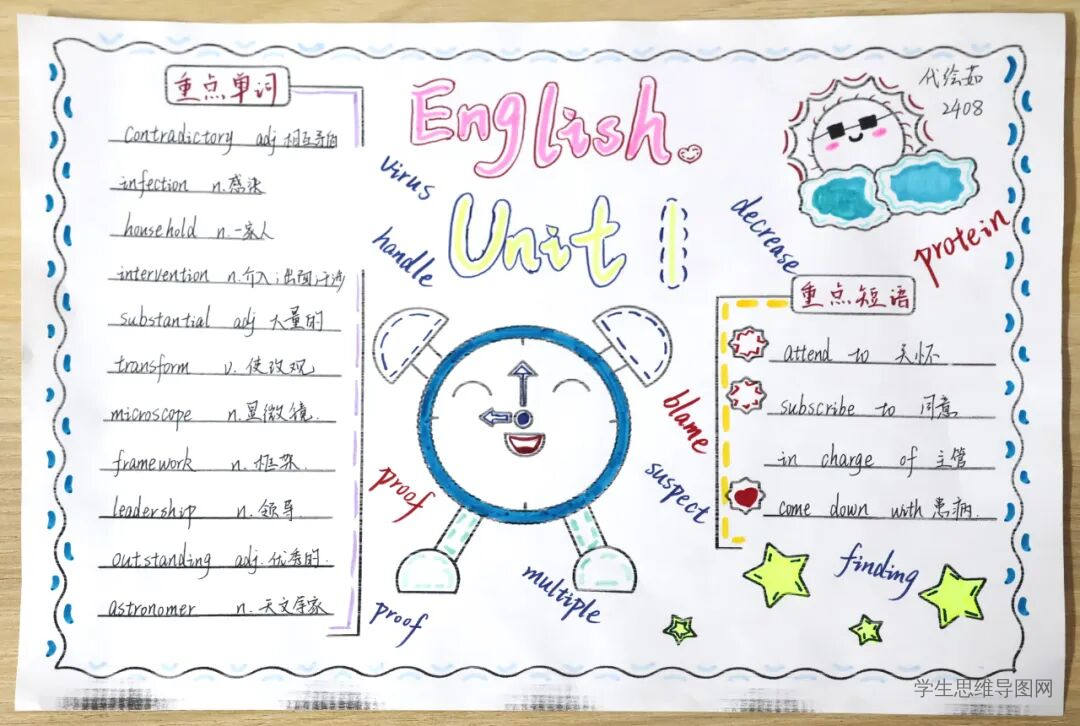 重点单词
contradictory adj 相互矛盾的
infection n.感染
household n.一家人
intervention n.介入;出面;干涉
substantial adj 大量的
transform v.使改观
microscope n.显微镜.
framework n.框架.
leadership n.领导
outstanding adj.优秀的.
astronomer n.天文学家
English
Unit 1
virus
handle
decrease
protein
代绘茹
2408
重点短语
attend to 关怀
subscribe to 同意
in charge of 主管
come down with 患病.
blame
suspect
proof
proof
multiple
finding
学生思维导图网